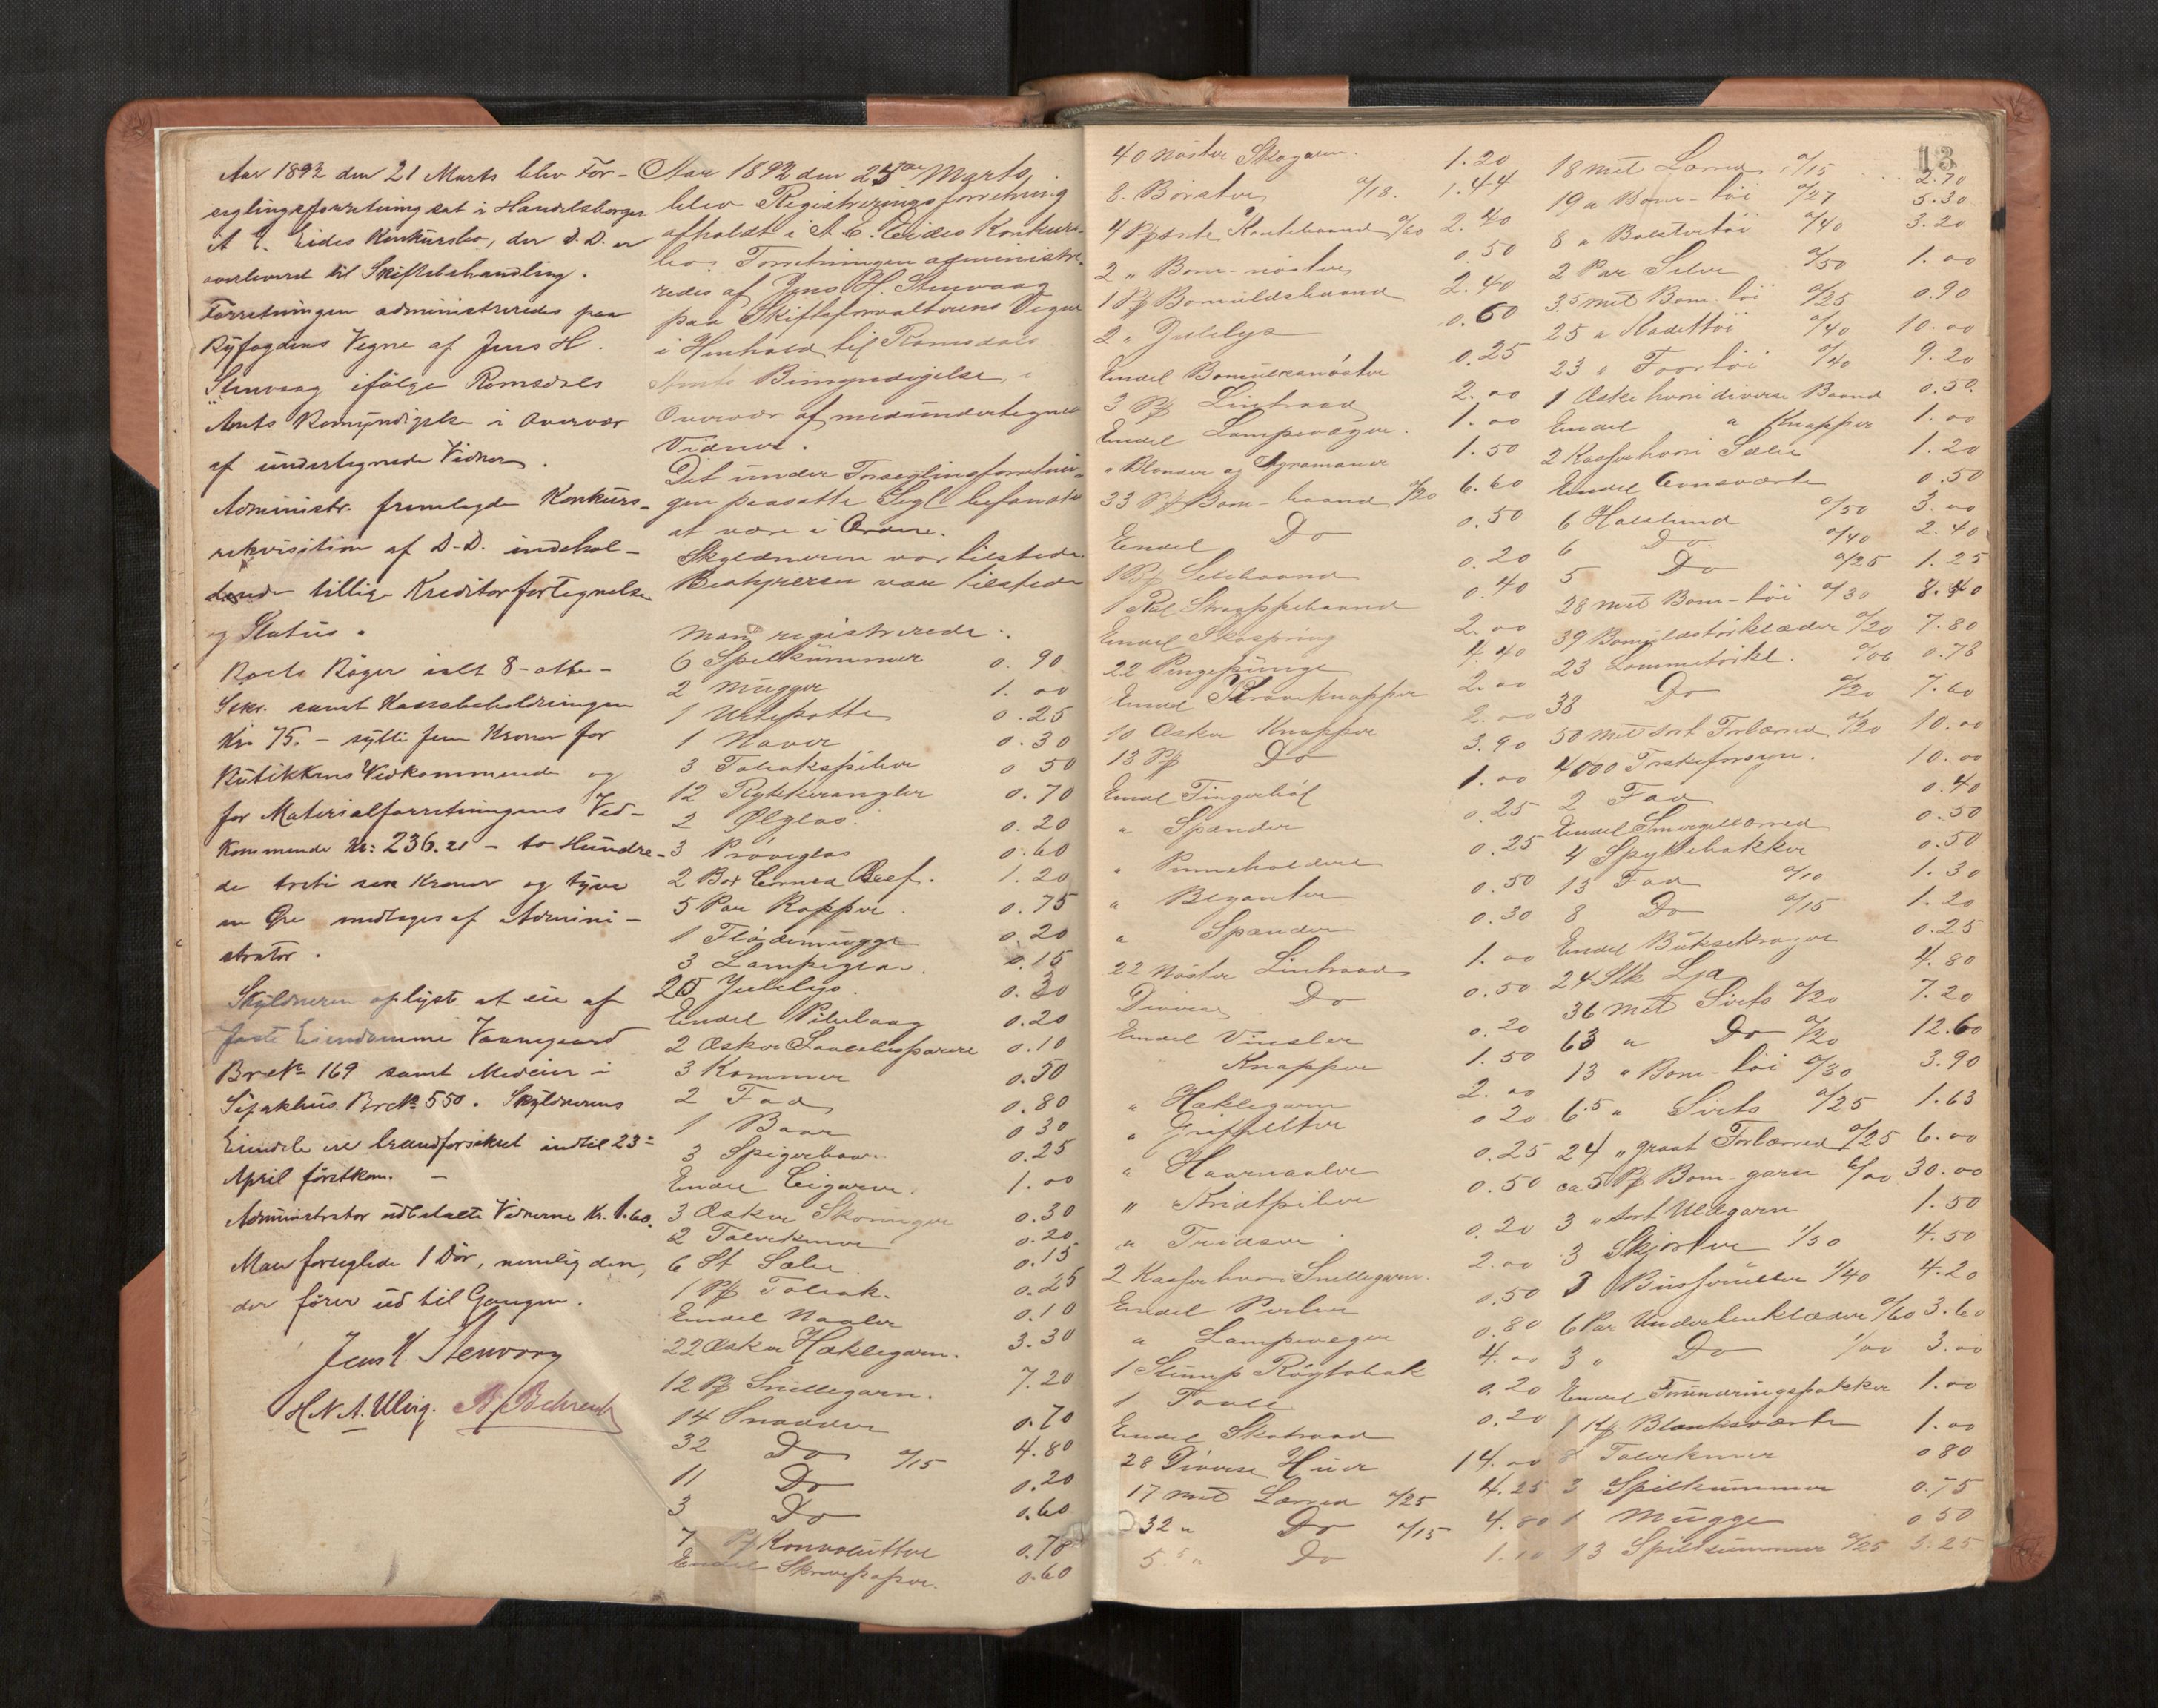 Aar 1892 den 21 Marts blev For-
seglingsforretning sat i Handelsborger
A E. Eides Konkursbo, der D.D. er
overleveret til Skiftebehandling.
Forretningen administreredes paa
Byfogdens Vegne af Jens H.
Stenvaag ifølge Romsdals
Amts Bemyndigelse i Overvær
af undertegnede Vidner.
Administr. fremlagde Konkurs-
rekvisition af D.D. indehol-
dende tillige Kreditorfortegnelse
og Status.
Boets Bøger ialt 8 - otte -
Stkr. samt Kassabeholdningen
Kr. 75. - sytti fem Kroner for
Butikkens Vedkommende og
for Materialforretningens Ved-
kommende Kr: 236.21 - to Hundre-
de treti sex Kroner og tyve
en Øre medtages af Admini-
strator.
Skyldneren oplyste at eie af
faste Eiendomme Vaanegaard
Br.No 169 samt Medeier i
Søpakhus Br.No 550. Skyldnerens
Eiendele ere brandforsikret indtil 23de
April førstkom. -
Administrator udbetalte Vidnerne Kr. 1.60.
Man forseglede 1 Dør, nemlig den,
der fører ud til Gangen.
Jens H. Stenvaag
H N. A. Ulvig. B. Behrendt
Aar 1892 den 25de Marts
blev Registreringsforretning
afholdt i A E. Eides Konkurs-
bo. Forretningen administre-
redes af Jens H. Stenvaag
paa Skifteforvalterens Vegne
i Henhold til Romsdals
Amts Bemyndigelse, i
Overvær af medundertegnede
Vidner.
Det under Forseglingsforretnin-
gen paasatte Segl befandtes
at være i Orden.
Skyldneren var tilstede
Bestyreren var tilstede
Man registrerede:
6 Spilkummer 0.90
2 Mugger 1.00
1 Urtepotte 0.25
1 Naver 0.30
3 Tobakspiber 0 50
12 Rykkerangler 0.70
2 Ølglas 0.20
3 Prøveglas 0.60
2 Box Corned Beef. 1.20
5 Par Kopper 0.75
1 Flødemugge 0.20
3 Lampeglas 0.15
20 Julelys 0.30
Endel Pibelaag 0.20
2 Æsker 0.10
3 Kommer 0.50
2 Fad 0.80
1 0 30
3 Spigerbaar 0.25
Endel Cigarer 1.00
3 Æsker Skoringer 0.30
2 Talerkener 0.20
6 St Sæler 0.15
1 Pf Tobak. 0.25
Endel Naaler 0.10
22 Æsker Hæklegarn. 3.30
12 Pf Snellegarn. 7.20
14 Snadder 0.70
32 Do a/15 4.80
11 Do 0.20
3 Do 0.60
7 Pf Konvolutter 0.70
Endel Skrivepapir. 0.60
13
40 Nøster Skogarn 1.20
8 Børster a/18. 1.44
4 Kantebaand a/60 2.40
2 " Bom-nøster 0.50
1 Pf Bomuldsbaand 2.40
2 " Julelys 0.60
Endel Bomuldsnøster 0.25
3 Pf Lintraad 2.00
Endel Lampevæger. 1.00
" Blonder og Agramaner 1.50
33 Pf Bom-baand a/20 6.60
Endel Do 0.50
1 Pf Silkebaand 0.20
1 Rul Strappebaand 0.40
Endel Skospring 2.00
22 Pengepunge 4.40
Endel Kraveknapper 2.00
10 Æsker Knapper 2.00
13 Pf Do 3.90
Endel Fingerbøl 1.00
" Spænder 0.25
" Penneholdere 0.25
" 0.50
" Spænder 0.30
22 Nøster Lintraad 1.00
Diverse Do 0.50
Endel Vinsler 0.20
" Knapper 1.50
" Hæklegarn 2.00
" Grifaltter 0 20
" Haarnaaler 0.25
" Kridtpiber 0.50
" Tridser 0.20
2 Kasser hvori Snellegarn. 2.00
Endel Perler 0.50
" Lampevæger 0.80
1 Stump Røgtobak 4.00
1 Tavle 0.20
Endel Skotraad 0.20
28 Diverse Huer 14.00
17 met Lærred a/25 4.25
32 " Do a/15 4.80
5.5 " Do 1.10
18 met Lærred a/15 2.70
19 " Bom-tøi a/27 5.30
8 " Bolstertøi a/40 3.20
2 Par Seler a/50 1.00
3.5 met Bom-tøi a/25 0.90
25 " Kadettøi a/40 10.00
23 " Foortøi a/40 9.20
1 Æske hvori diverse Baand 0.50.
Endel " Knapper 1.00
2 Kasser hvori Sæbe 1.20
Endel Ovnsværte 0.50
6 Halslind a/50 3.00
6 Do a/40 2.40
5 Do a/25 1.25
28 met Bom-tøi a/30 8.40
39 Bomuldstørklæder a/20 7.80
23 Lommetørkl. a/06 0.78
38 Do a/20 7.60
50 met sort Forlærred a/20 10.00
4000 Torskeforsyn. 10.00
2 Fad 0.40
Endel Smergellærred 0.50
4 Spyttebakker 0.50
13 Fad a/10 1.30
8 Do a/15 1.20
Endel Buksekroger 0.25
24 Stk Lja 4.80
36 met Sirts a/20 7.20
63 " Do a/20 12.60
13 " Bom-tøi a/30 3.90
6.5 " Sirts a/25 1.63
24 " graat Forlærred a/25 6.00
ca 5 Pf Bom-garn 6/00 30.00
3 " sort Uldgarn 1.50
3 Skjorter 1/50 4.50
3 Busseruller 1/40 4.20
6 Par Underbenklæder a/60 3.60
3 " Do 1/00 3.00
Endel Forundringspakker 1.00
1 Kf Blanksværte 1.00
8 Talerkener 0 80
3 Spilkummer 0.75
1 Mugge 0 50
13 Spilkummer a/25 3.25